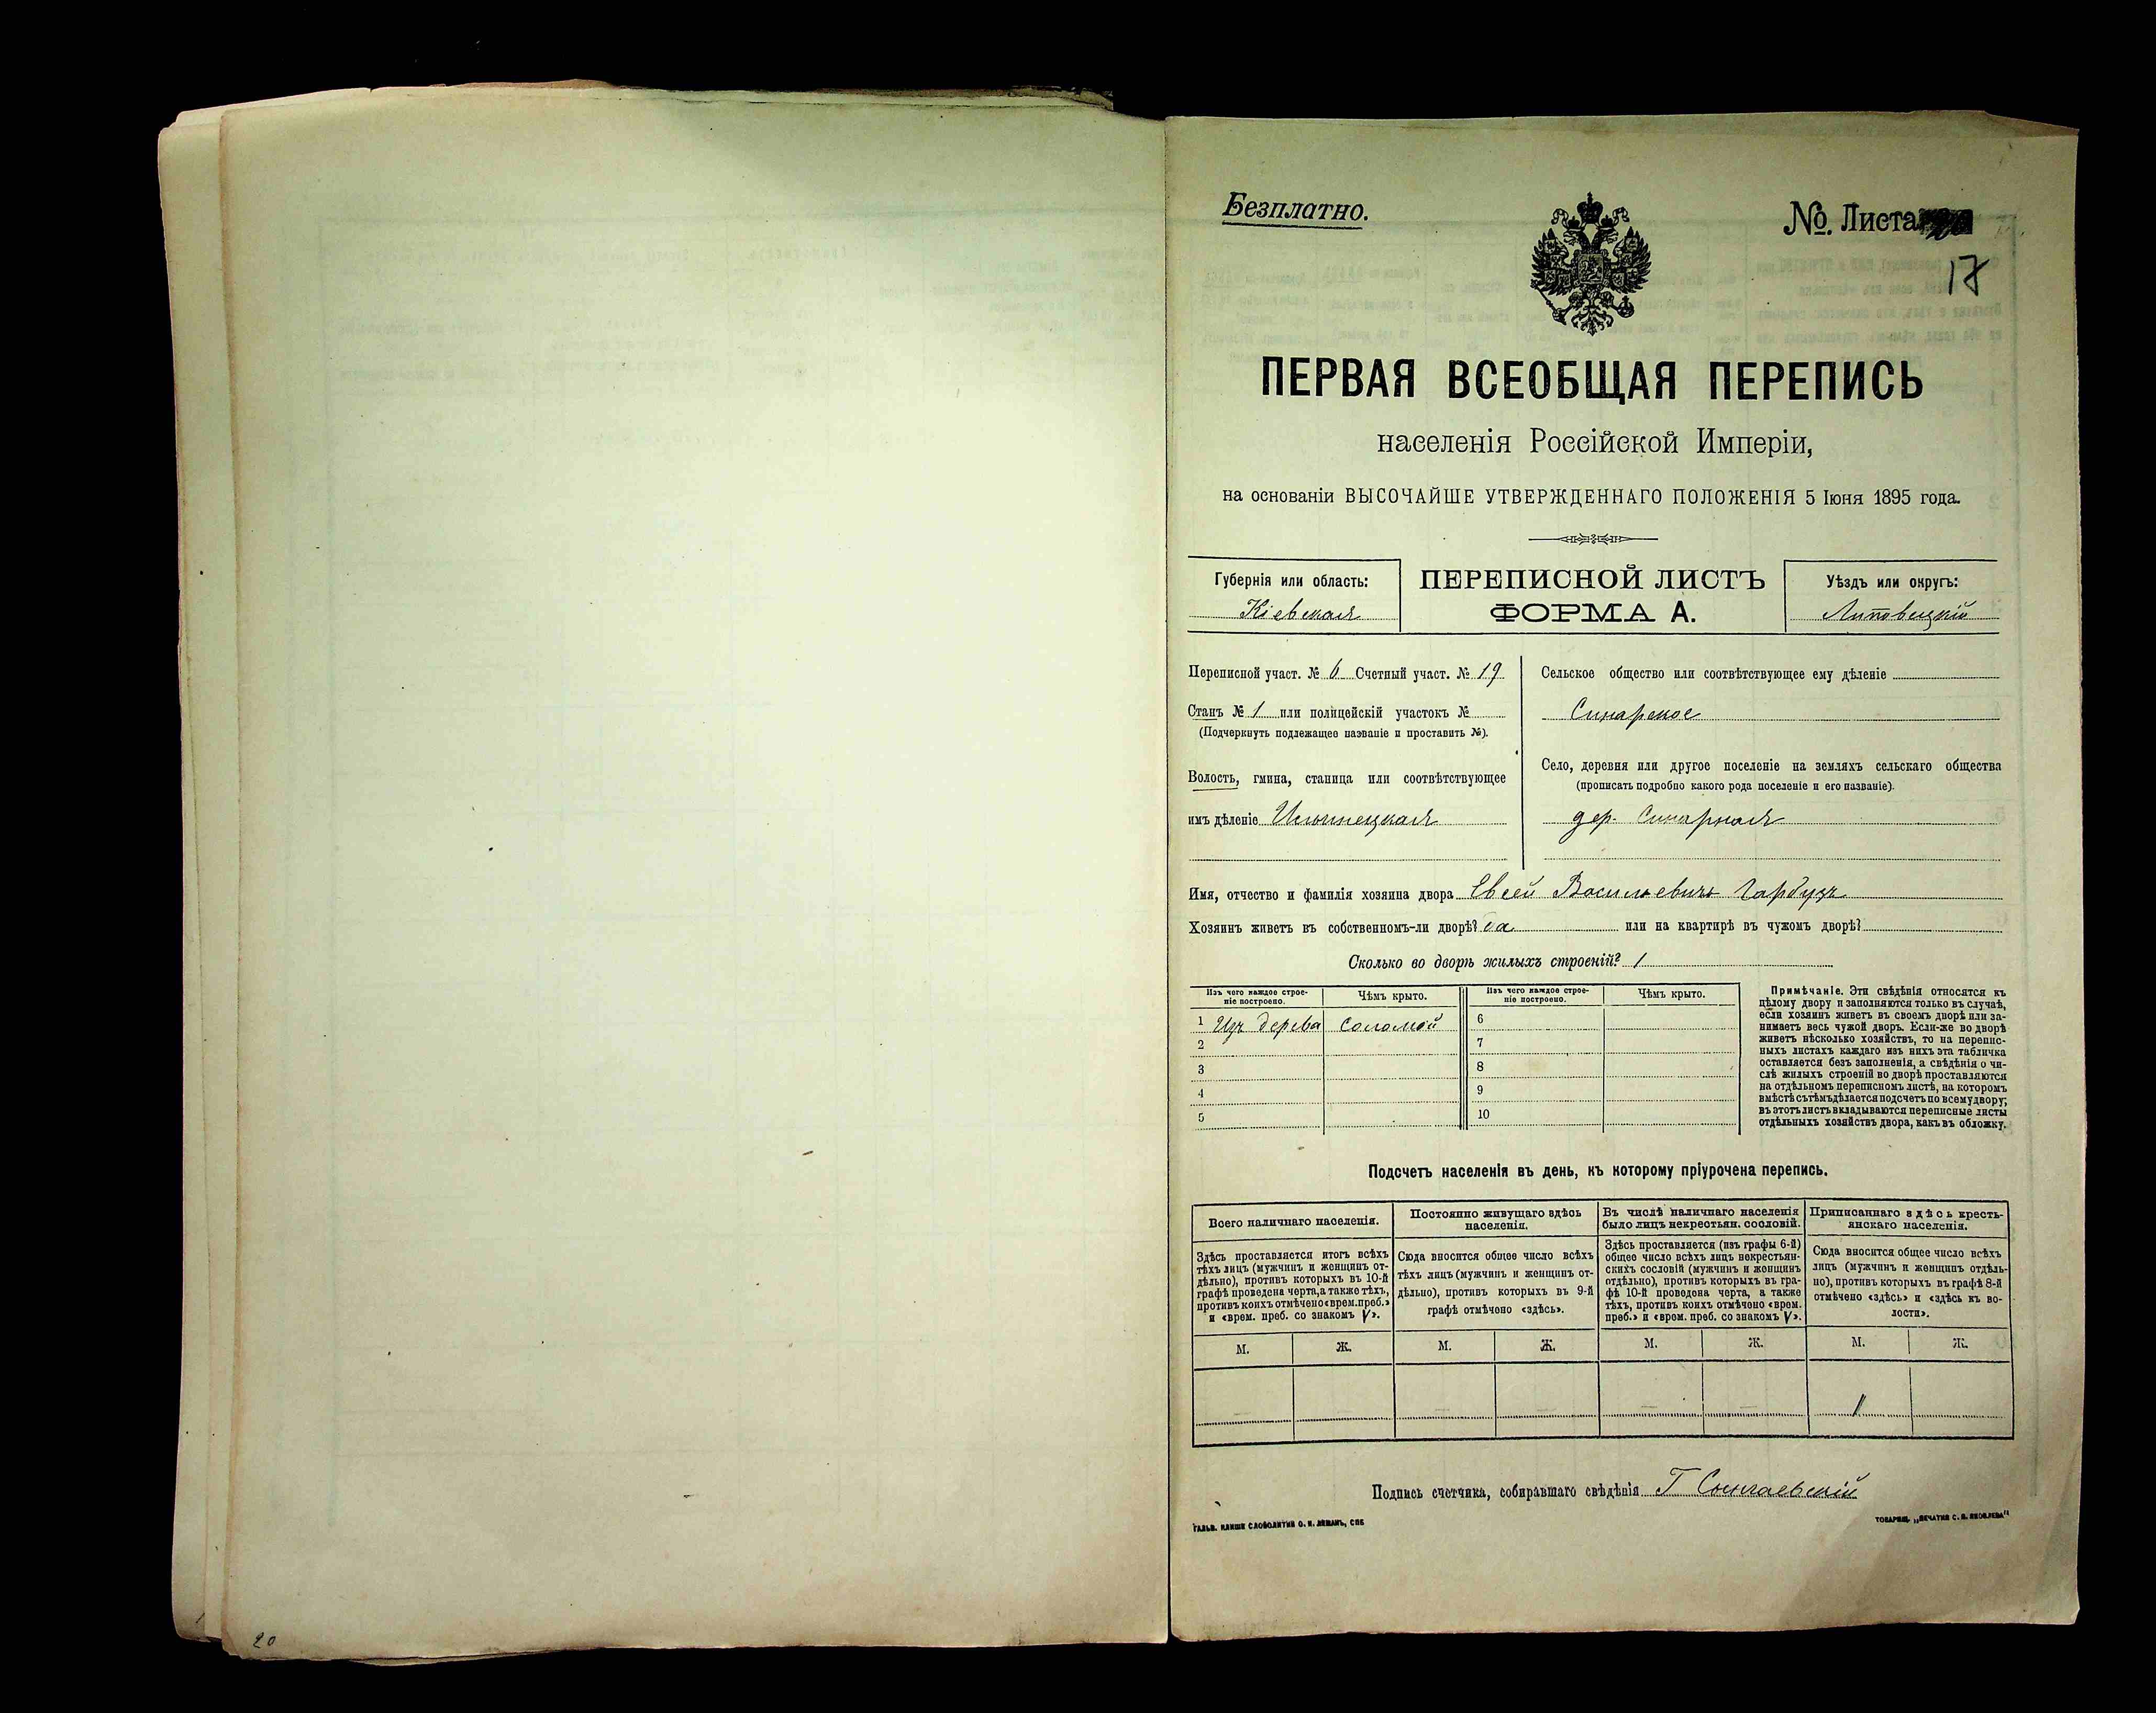 Безплатно.
№. Листа
17
ПЕРВАЯ ВСЕОБЩАЯ ПЕРЕПИСЬ
населенія Россійской Имперіи,
на основаніи ВЫСОЧАЙШЕ УТВЕРЖДЕННАГО ПОЛОЖЕНІЯ 5 Іюня 1895 года.
Губернія или область:
Кіевская
ПЕРЕПИСНОЙ ЛИСТЪ
ФОРМА А.
Уѣздъ или округъ:
Липовецкій
Переписной участ. № 6 Счетный участ. № 19
Станъ № 1 или полицейскій участокъ №
(Подчеркнуть подлежащее названіе и проставить №).
Волость, гмина, станица или соотвѣтствующее
имъ дѣленіе
Сельское общество или соотвѣтствующее ему дѣленіе
Синарское
Село, деревня или другое поселеніе на земляхъ сельскаго общества
(прописать подробно какого рода поселеніе и его названіе).
дер. Синарная
Имя, отчество и фамилія хозяина двора Евсей Васильевичъ Гарбузъ
Хозяинъ живетъ въ собственномъ-ли дворѣ? да или на квартирѣ въ чужомъ дворѣ?
Сколько во дворѣ жилыхъ строеній? 1
Изъ чего каждое строе-
ніе построено.
Чѣмъ крыто.
Изъ чего каждое строе-
ніе построено.
Чѣмъ крыто.
1 Изъ дерева соломой 6
2 7
3 8
4 9
5 10
Примѣчаніе. Эти свѣдѣнія относятся къ
цѣлому двору и заполняются только въ случаѣ,
если хозяинъ живетъ въ своемъ дворѣ или за-
нимаетъ весь чужой дворъ. Если-же во дворѣ
живетъ нѣсколько хозяйствъ, то на перепис-
ныхъ листахъ каждаго изъ нихъ эта табличка
оставляется безъ заполненія, а свѣдѣнія о чи-
слѣ жилыхъ строеній во дворѣ проставляются
на отдѣльномъ переписномъ листѣ, на которомъ
вмѣстѣ съ тѣмъ дѣлается подсчетъ по всему двору;
въ этотъ листъ вкладываются переписные листы
отдѣльныхъ хозяйствъ двора, какъ въ обложку.
Подсчетъ населенія въ день, къ которому пріурочена перепись.
Всего наличнаго населенія.
Здѣсь проставляется итогъ всѣхъ
тѣхъ лицъ (мужчинъ и женщинъ от-
дѣльно), противъ которыхъ въ 10-й
графѣ проведена черта, а также тѣхъ,
противъ коихъ отмѣчено «врем. преб.»
и «врем. преб. со знакомъ V».
Постоянно живущаго здѣсь
населенія.
Сюда вносится общее число всѣхъ
тѣхъ лицъ (мужчинъ и женщинъ от-
дѣльно), противъ которыхъ въ 9-й
графѣ отмѣчено «здѣсь».
Въ числѣ наличнаго населенія
было лицъ некрестьян. сословій.
Здѣсь проставляется (изъ графы 6-й)
общее число всѣхъ лицъ некрестьян-
скихъ сословій (мужчинъ и женщинъ
отдѣльно), противъ которыхъ въ гра-
фѣ 10-й проведена черта, а также
тѣхъ, противъ коихъ отмѣчено «врем.
преб.» и «врем. преб. со знакомъ V».
Приписаннаго здѣсь кресть-
янскаго населенія.
Сюда вносится общее число всѣхъ
лицъ (мужчинъ и женщинъ отдѣль-
но), противъ которыхъ въ графѣ 8-й
отмѣчено «здѣсь» и «здѣсь къ во-
лости».
М. Ж. М. Ж. М. Ж. М. Ж.
Подпись счетчика, собиравшаго свѣдѣнія
ГАЛЬВ. КЛИШЕ СЛОВОЛИТНИ О. И. ЛЕМАНЪ, СПБ
ТОВАРИЩ. „ПЕЧАТНЯ С. П. ЯКОВЛЕВА"
20